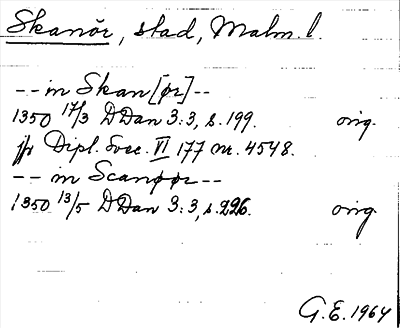 Skanör, stad, Malm. l.
-- in Skan[ør] --
1350 17/3 DDan 3:3, s. 199. orig.
jfr Dipl. Svec. VI 177 nr. 4548.
-- in Scanøør --
1350 13/5 DDan 3:3, s. 226. orig.
G.E. 1964